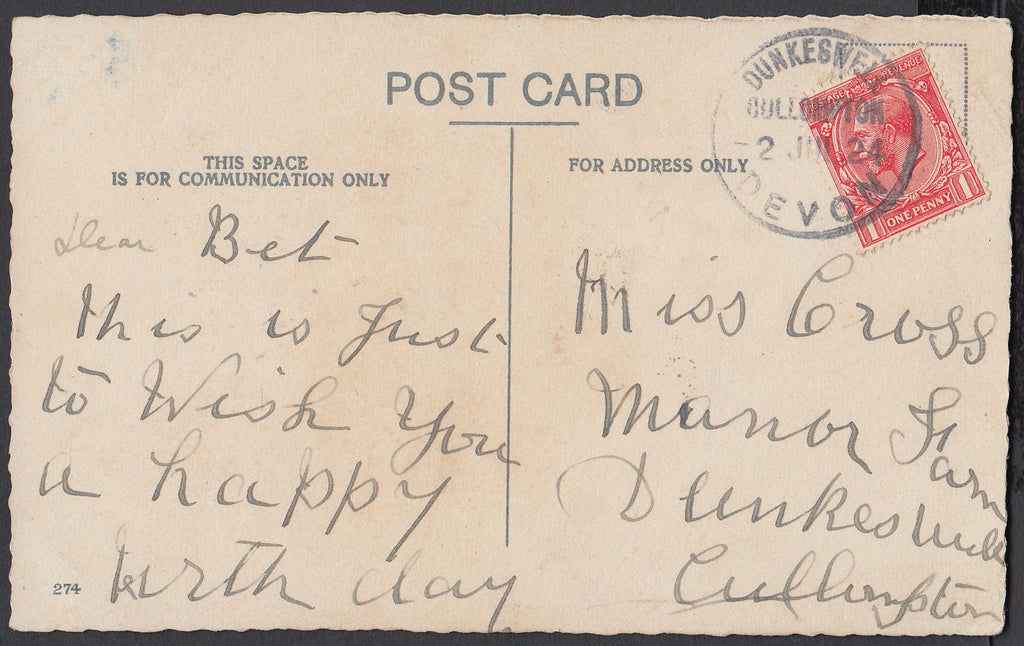 POST CARD
THIS SPACE
IS FOR COMMUNICATION ONLY
Dear Bet
This is Just
to Wish You
a happy
birth day
274
FOR ADDRESS ONLY
DUNKESWELL
CULLOMPTON
2 24
DEVON
POSTAGE REVENUE
1 ONE PENNY 1
Miss Cross
Manor Farm
Dunkeswell
Cullompton